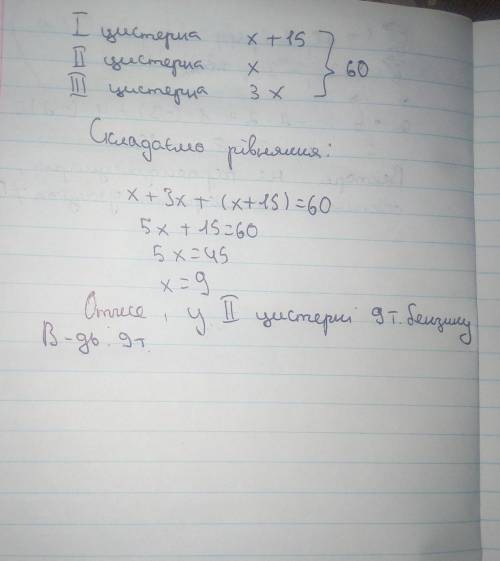 I цистерна x + 15
II цистерна x } 60
III цистерна 3x
Складаємо рівняння:
x + 3x + (x+15) = 60
5x + 15 = 60
5x = 45
x = 9
Отже, у II цистерні 9 т. бензину
В-дь: 9т.